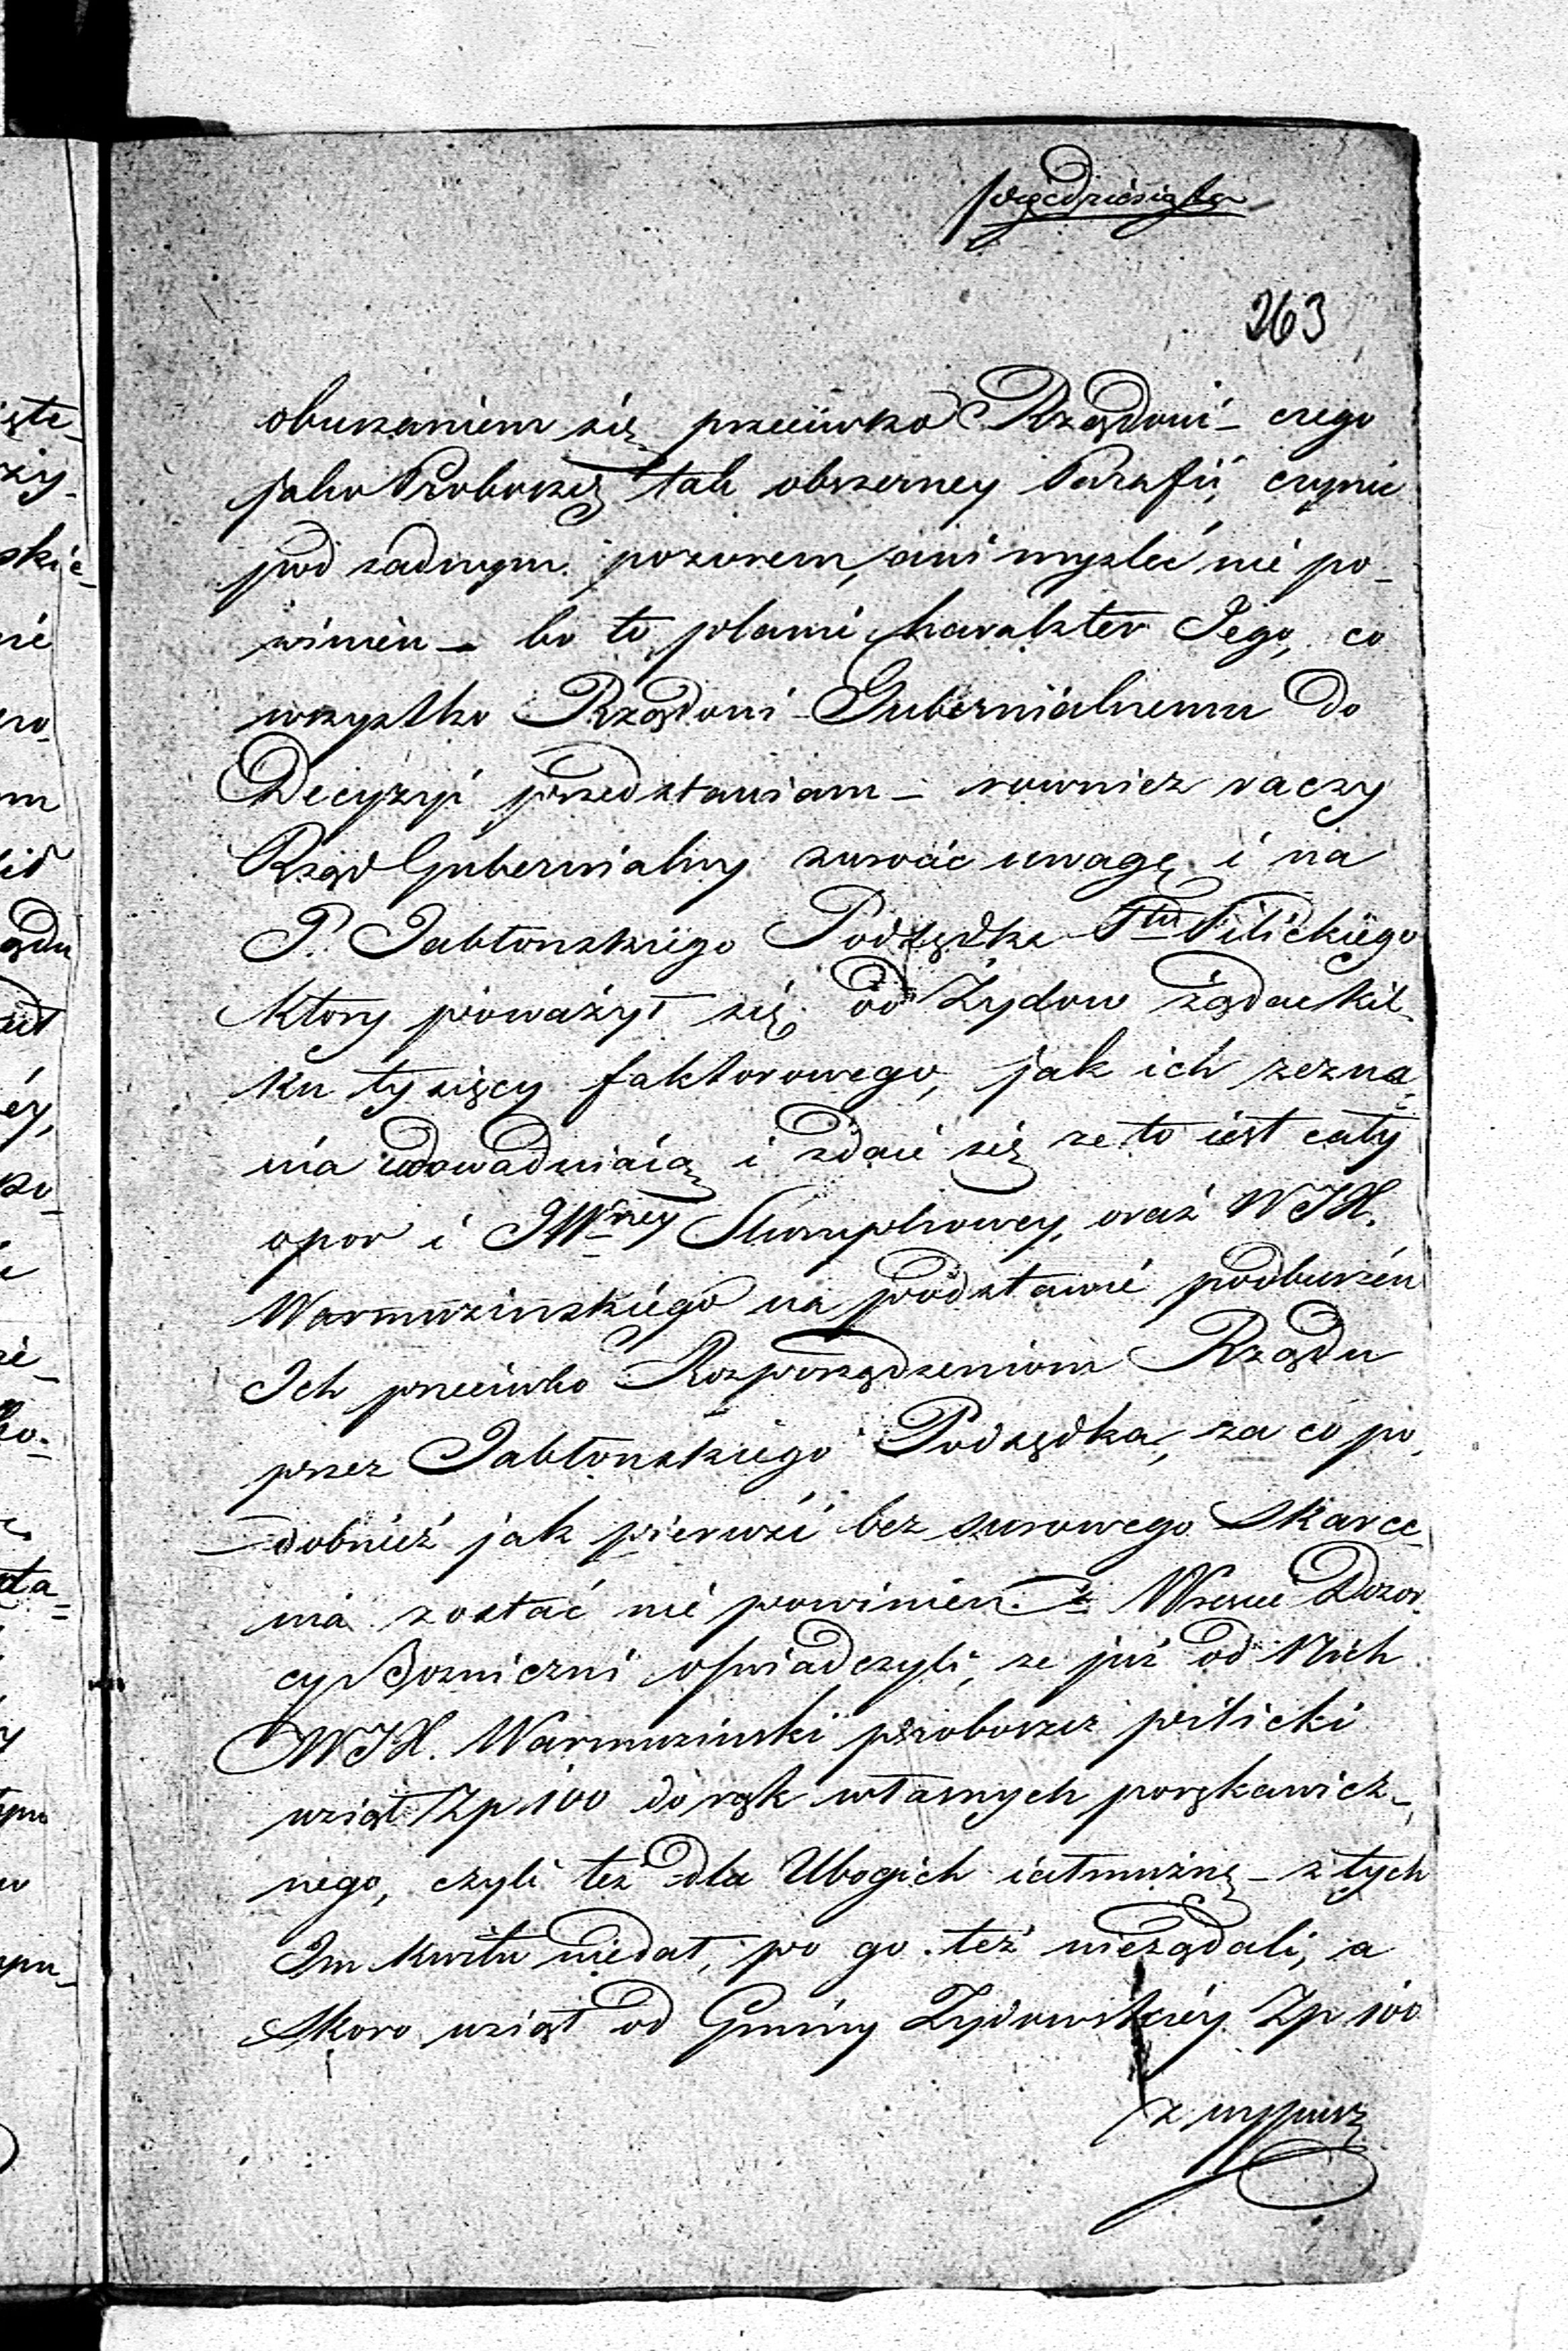 pięcdziesiąta
263
oburzaniem się przeciwko Rządowi – czego
jako Proboszcz tak obszerney Parafii, czynić
pod zadnym pozorem, ani mysleć nie po-
winien – bo to plami charakter Jego, co
wszystko Rządowi Gubernialnemu do
Decyzyi przedstawiam – rowniez raczy
Rząd Gubernialny zwrócić uwagę i na
P. Jabłonskiego Podsędka Ptu Pilickiego
ktory poważył się od Zydow żądac kil-
ku tysięcy faktorowego, jak ich zezna-
nia udowadniaią i zdaie się ze to iest cały
opor i JWney Stumphowey, oraz WJX.
Warmuzinskiego na podstawie podburzeń
Ich przeciwko Rozporządzeniom Rządu
przez Jabłonskiego Podsędka, za co po-
dobnież jak pierwsi bez surowego skarce-
nia zostać nie powinien. Wreście Dozor-
cy Bozniczni oswiadczyli, ze już od Nich
WJX. Warmuzinski proboszcz pilicki
wziął Zp 100 do rąk własnych porękawicz-
nego, czyli też dla Ubogich iałmużnę – z tych
Im kwitu niedał, po go też nieżądali, a
skoro wziął od Gminy Zydowskiéy Zp 100